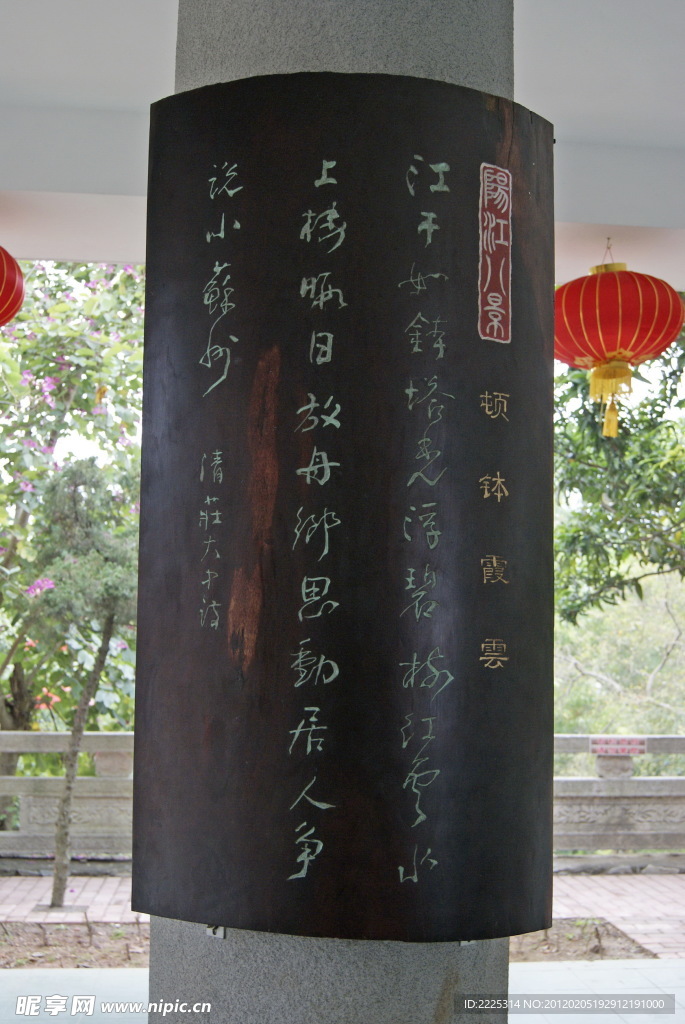 陽江八景
顿钵霞雲
江干如鉢塔光浮碧樹红雲水
上樓晚日放丹鄉思動居人争
說小蘇州
清莊大中詩
昵享网 www.nipic.cn
ID:2225314 NO:20120205192912191000